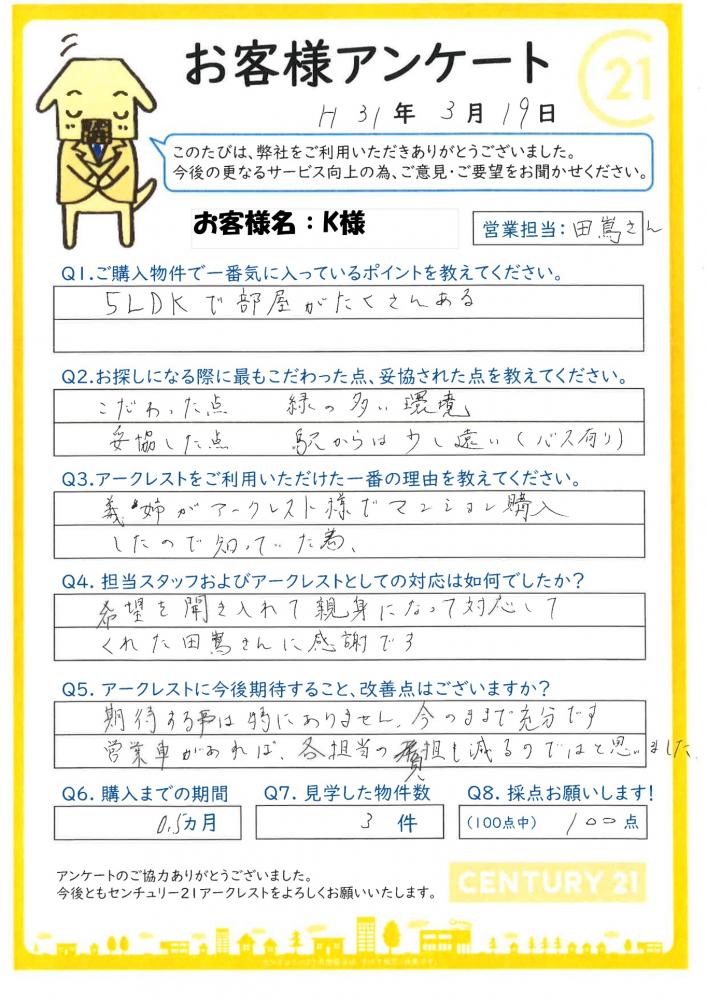 お客様アンケート
21
H31年 3月19日
このたびは、弊社をご利用いただきありがとうございました。
今後の更なるサービス向上の為、ご意見・ご要望をお聞かせください。
お客様名：K様
営業担当：田嶌さん
Q1.ご購入物件で一番気に入っているポイントを教えてください。
5LDKで部屋がたくさんある
Q2.お探しになる際に最もこだわった点、妥協された点を教えてください。
こだわった点 緑の多い環境
妥協した点 駅からは少し遠い(バス有り)
Q3.アークレストをご利用いただけた一番の理由を教えてください。
義姉がアークレスト様でマンション購入
したので知っていた為、
Q4. 担当スタッフおよびアークレストとしての対応は如何でしたか？
希望を聞き入れて親身になって対応して
くれた田嶌さんに感謝です
Q5. アークレストに今後期待すること、改善点はございますか？
期待する事は特にありません、今のままで充分です
営業車があれば、各担当の負担も減るのではと思いました
Q6. 購入までの期間
0.5カ月
Q7. 見学した物件数
3 件
Q8. 採点お願いします！
(100点中) 100点
アンケートのご協力ありがとうございました。
今後ともセンチュリー21アークレストをよろしくお願いいたします。
CENTURY 21